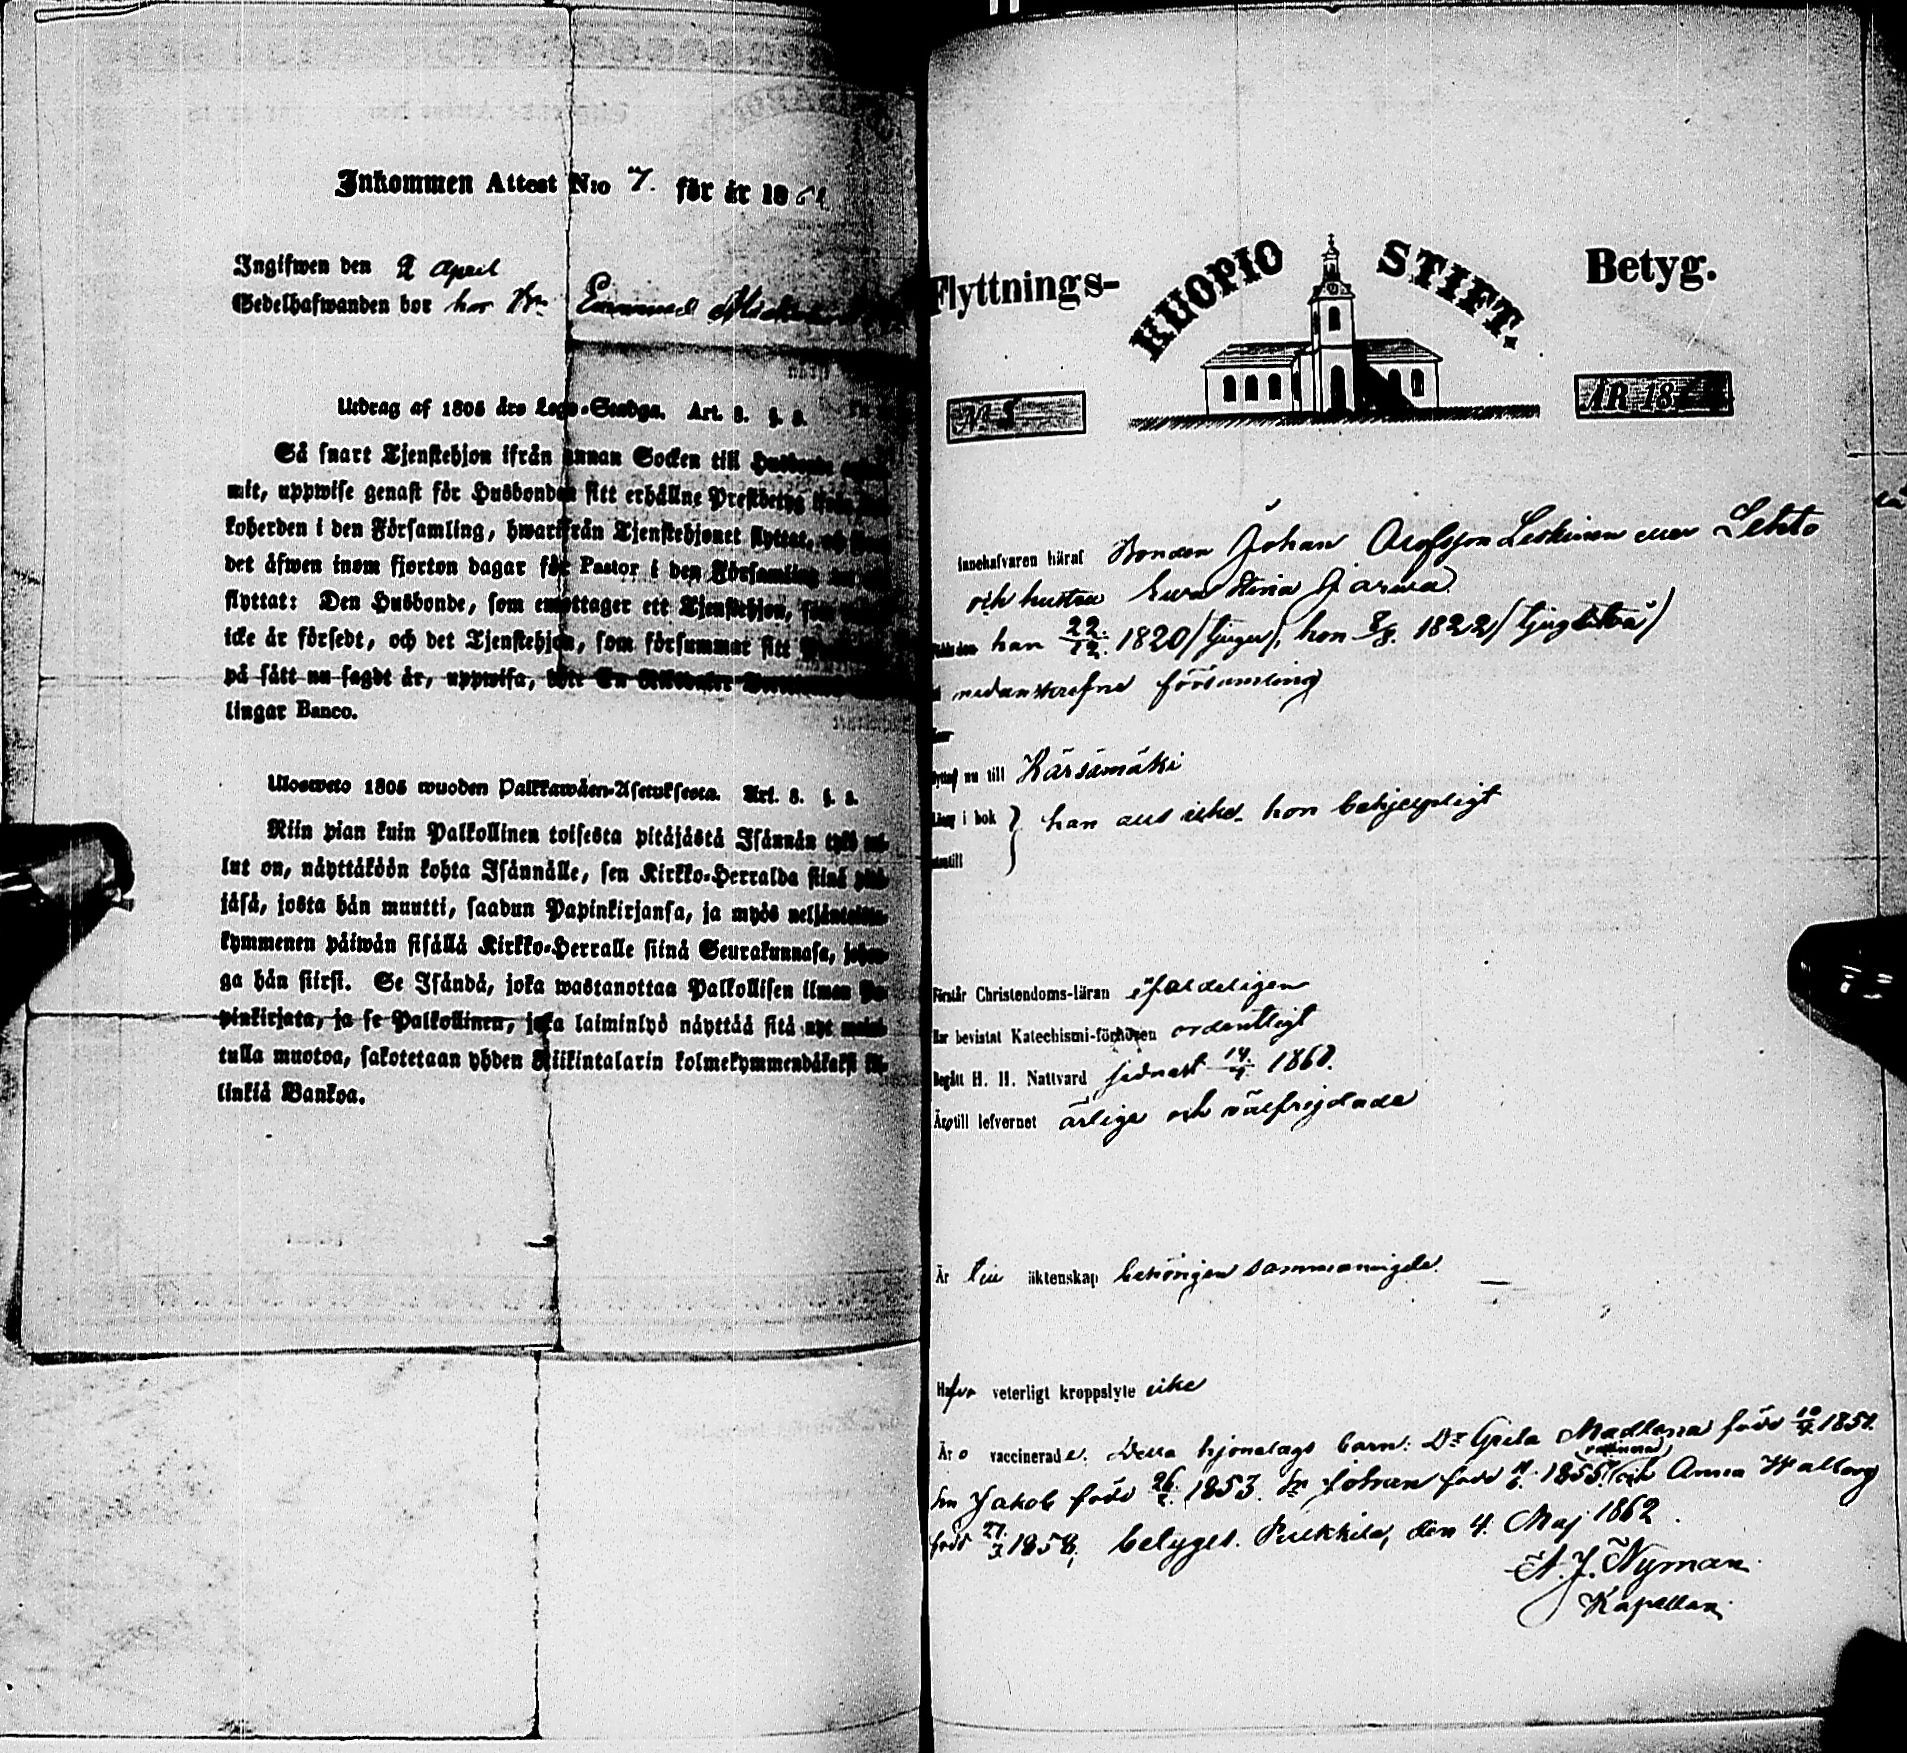 Inkommen Attest N:o 7. för år 186
Ingifwen den 2 April
Sedelhafwanden bor hos Bn Emanuel
Utdrag af 1805 års Lego-Stadga. Art. 3. §. 3.
Så snart Tjenstehjon ifrån annan Socken till Husbonde
mit, uppwise genast för Husbonden sitt erhållne Prestbetyg
koherden i den Församling, hwarifrån Tjenstehjonet flyttat,
det äfwen inom fjorton dagar för Pastor i den Församling
flyttat: Den Husbonde, som emottager ett Tjenstehjon, som
icke är försedt, och det Tjenstehjon, som försummar sitt
på sätt nu sagdt är, uppwisa, böte En Riksdaler
lingar Banco.
Ulosweto 1805 wuoden Palkkawäen-Asetuksesta. Art. 3. §. 3.
Niin pian kuin Palkollinen toisesta pitäjästä Isännän tykö tul-
lut on, näyttäköön kohta Isännälle, sen Kirkko-Herralda siinä pitä-
jäsä, josta hän muutti, saadun Papinkirjansa, ja myös neljäntoista-
kymmenen päiwän sisällä Kirkko-Herralle siinä Seurakunnasa, johon-
ga hän siirsi. Se Isändä, joka wastanottaa Palkollisen ilman Pa-
pinkirjata, ja se Palkollinen, joka laiminlyö näyttää sitä nyt maini-
tulla muotoa, sakotetaan yhden Riikintalarin kolmekymmendäkaksi kil-
linkiä Bankoa.
Flyttnings- KUOPIO STIFT. Betyg.
№ 5 ÅR 18
Innehafvaren häraf Bonden Johan Olofsson Leskinen eller Lehto
och hustru Eva Stina Jarwa
Född den han 22/12. 1820 /tjugu/, hon 8/8. 1822 /tjugutvå/
i nedanskrefne församling
flyttar nu till Kärsämäki
Läser i bok } han alls icke, hon behjelpligt
utantill
Förstår Christendoms-läran enfaldeligen
Har bevistat Katechismi-förhören ordentligt
Begått H. H. Nattvard sednast 14/4 1861.
Äro till lefvernet ärlige och välfrejdade
Är till äktenskap behörigen sammanvigde
Hafva veterligt kroppslyte icke
Äro vaccinerade. Detta hjonelags barn: Dr Greta Madlena född 10/4 1851.
Sn Jakob född 26/2. 1853. Sn Johan född 11/6. 1855. (vaccinerad) och Anna Walborg
född 27/3 1858, betyget. Pulkkila, den 4. Maj 1862.
A. J. Nyman
Kapellan